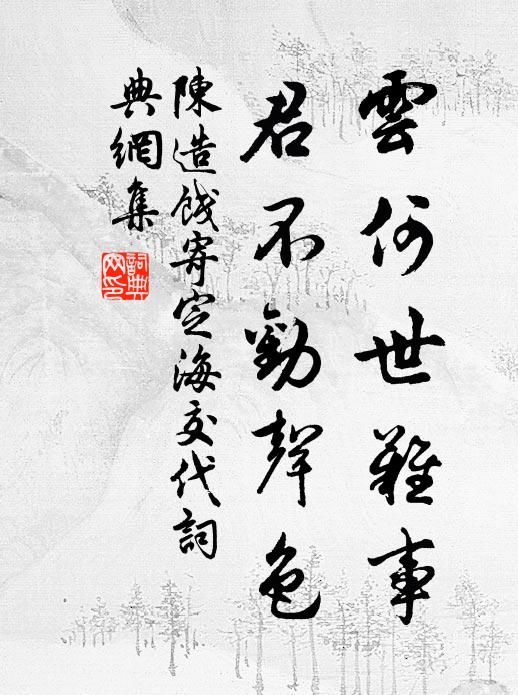 雲何世難事
君不動聲色
陳造餞寄定海交代詞
典網集
詞典網印